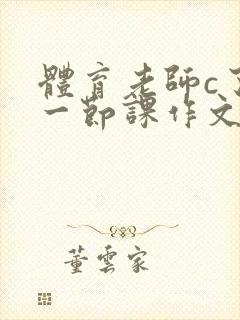 體育老師c
一節課作文
董雲家